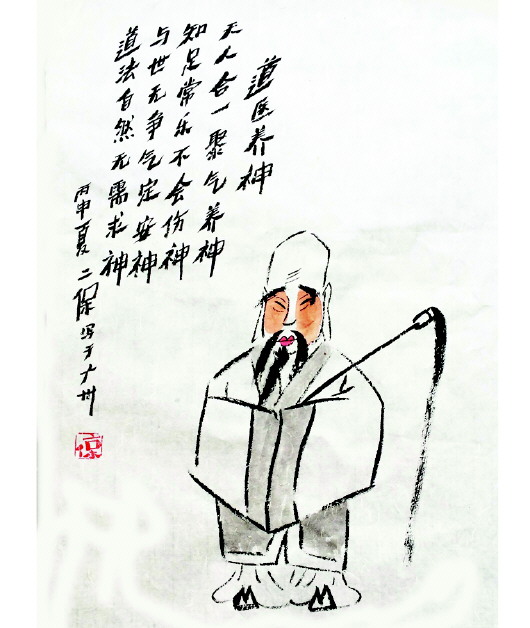 道医养神
天人合一聚气养神
知足常乐不会伤神
与世无争气定安神
道法自然无需求神
丙申夏二保写于广州